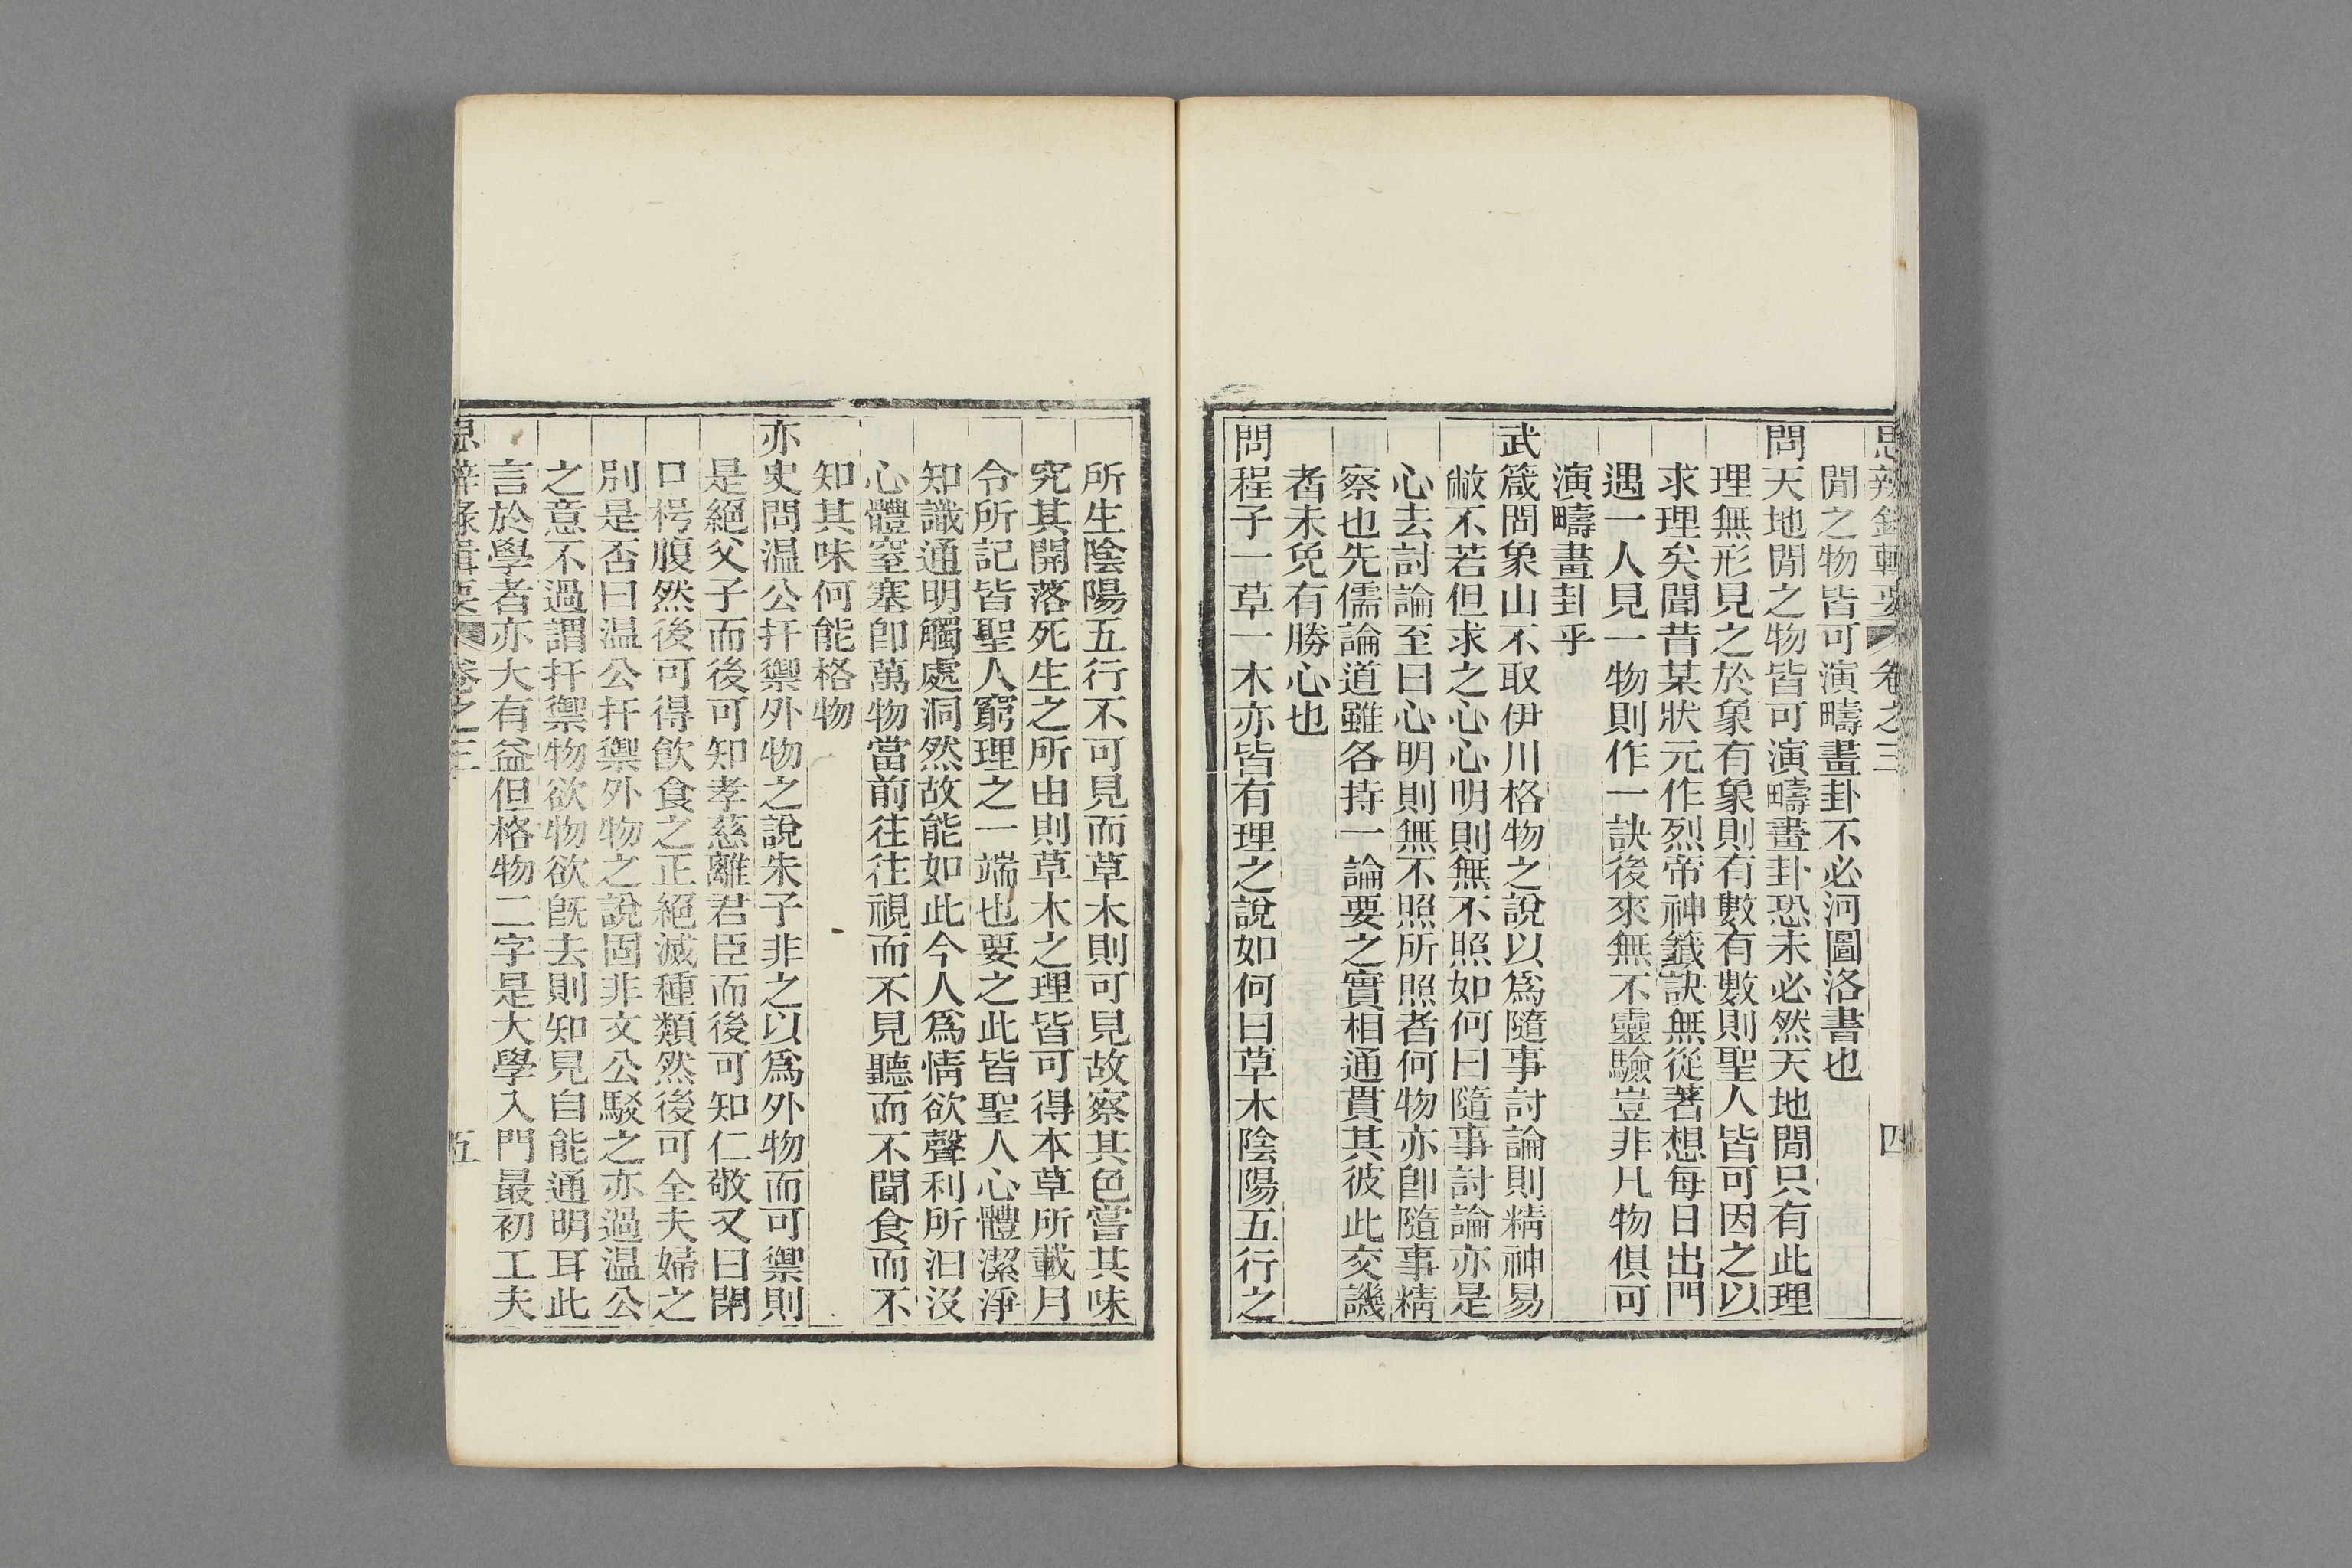 思辨錄輯要 卷之三 四
閒之物皆可演疇畫卦不必河圖洛書也
問天地閒之物皆可演疇畫卦恐未必然天地閒只有此理
理無形見之於象有象則有數有數則聖人皆可因之以
求理矣聞昔某狀元作烈帝神籤訣無從著想每日出門
遇一人見一物則作一訣後來無不靈驗豈非凡物俱可
演疇畫卦乎
武箴問象山不取伊川格物之說以爲隨事討論則精神易
敝不若但求之心心明則無不照如何曰隨事討論亦是
心去討論至曰心明則無不照所照者何物亦卽隨事精
察也先儒論道雖各持一論要之實相通貫其彼此交譏
者未免有勝心也
問程子一草一木亦皆有理之說如何曰草木陰陽五行之
所生陰陽五行不可見而草木則可見故察其色嘗其味
究其開落死生之所由則草木之理皆可得本草所載月
令所記皆聖人窮理之一端也要之此皆聖人心體潔淨
知識通明觸處洞然故能如此今人爲情欲聲利所汩沒
心體窒塞卽萬物當前往往視而不見聽而不聞食而不
知其味何能格物
亦史問温公扞禦外物之說朱子非之以爲外物而可禦則
是絕父子而後可知孝慈離君臣而後可知仁敬又曰閉
口枵腹然後可得飮食之正絕滅種類然後可全夫婦之
別是否曰温公扞禦外物之說固非文公駁之亦過温公
之意不過謂扞禦物欲物欲旣去則知見自能通明耳此
言於學者亦大有益但格物二字是大學入門最初工夫
思辨錄輯要 卷之三 五